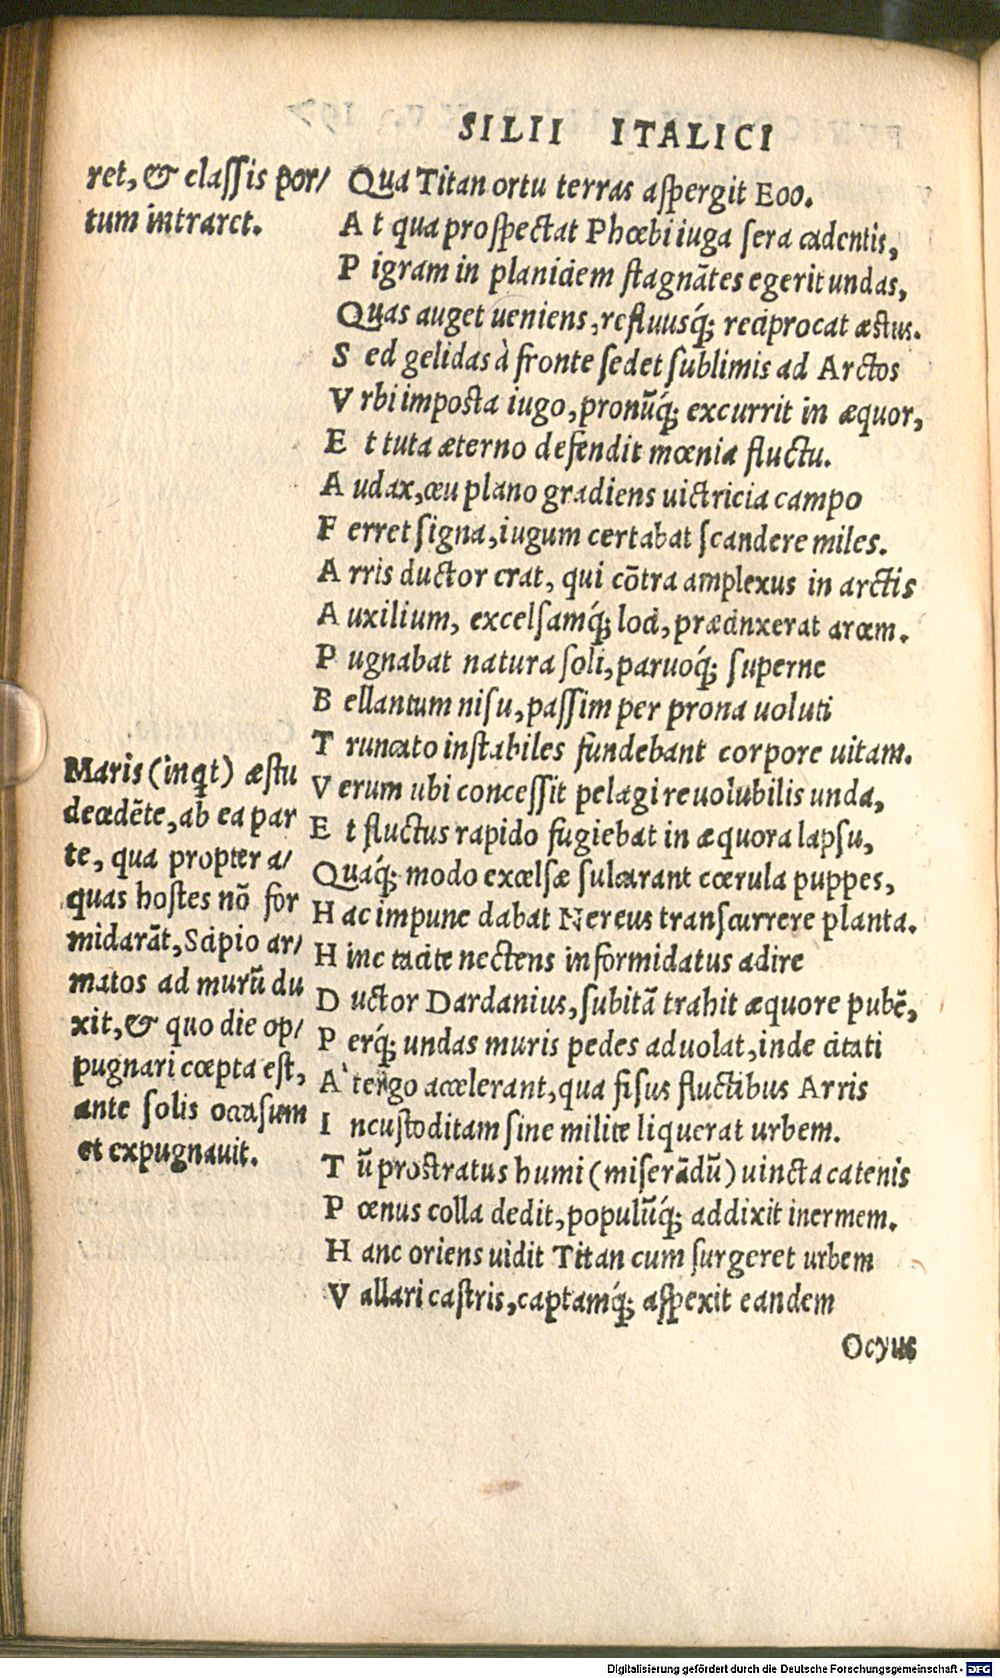 SILII ITALICI
ret, & classis por/
tum intraret.
Qua Titan ortu terras aspergit Eoo.
A t qua prospectat Phœbi iuga sera cadentis,
P igram in planiciem stagnãtes egerit undas,
Quas auget ueniens, refluusq́; reciprocat æstus.
S ed gelidas à fronte sedet sublimis ad Arctos
V rbi imposta iugo, pronũq́; excurrit in æquor,
E t tuta æterno defendit mœnia fluctu.
A udax, ceu plano gradiens uictricia campo
F erret signa, iugum certabat scandere miles.
A rris ductor erat, qui cõtra amplexus in arctis
A uxilium, excelsamq́; loci, præcinxerat arcem.
P ugnabat natura soli, paruoq́; superne
B ellantum nisu, passim per prona uoluti
T runcato instabiles fundebant corpore uitam.
V erum ubi concessit pelagi reuolubilis unda,
E t fluctus rapido fugiebat in æquora lapsu,
Quáq́; modo excelsæ sulcarant cœrula puppes,
H ac impune dabat Nereus transcurrere planta.
H inc tacite nectens informidatus adire
D uctor Dardanius, subitã trahit æquore pubẽ,
P erq́; undas muris pedes aduolat, inde citati
A' tergo accelerant, qua fisus fluctibus Arris
I ncustoditam sine milite liquerat urbem.
T ũ prostratus humi (miserãdũ) uincta catenis
P œnus colla dedit, populũq́; addixit inermem.
H anc oriens uidit Titan cum surgeret urbem
V allari castris, captamq́; aspexit eandem
Maris (inqt) æstu
decedẽte, ab ea par
te, qua propter a/
quas hostes nõ for
midarãt, Scipio ar/
matos ad murũ du
xit, & quo die op/
pugnari cœpta est,
ante solis occasum
et expugnauit.
Ocyus
Digitalisierung gefördert durch die Deutsche Forschungsgemeinschaft - DFG